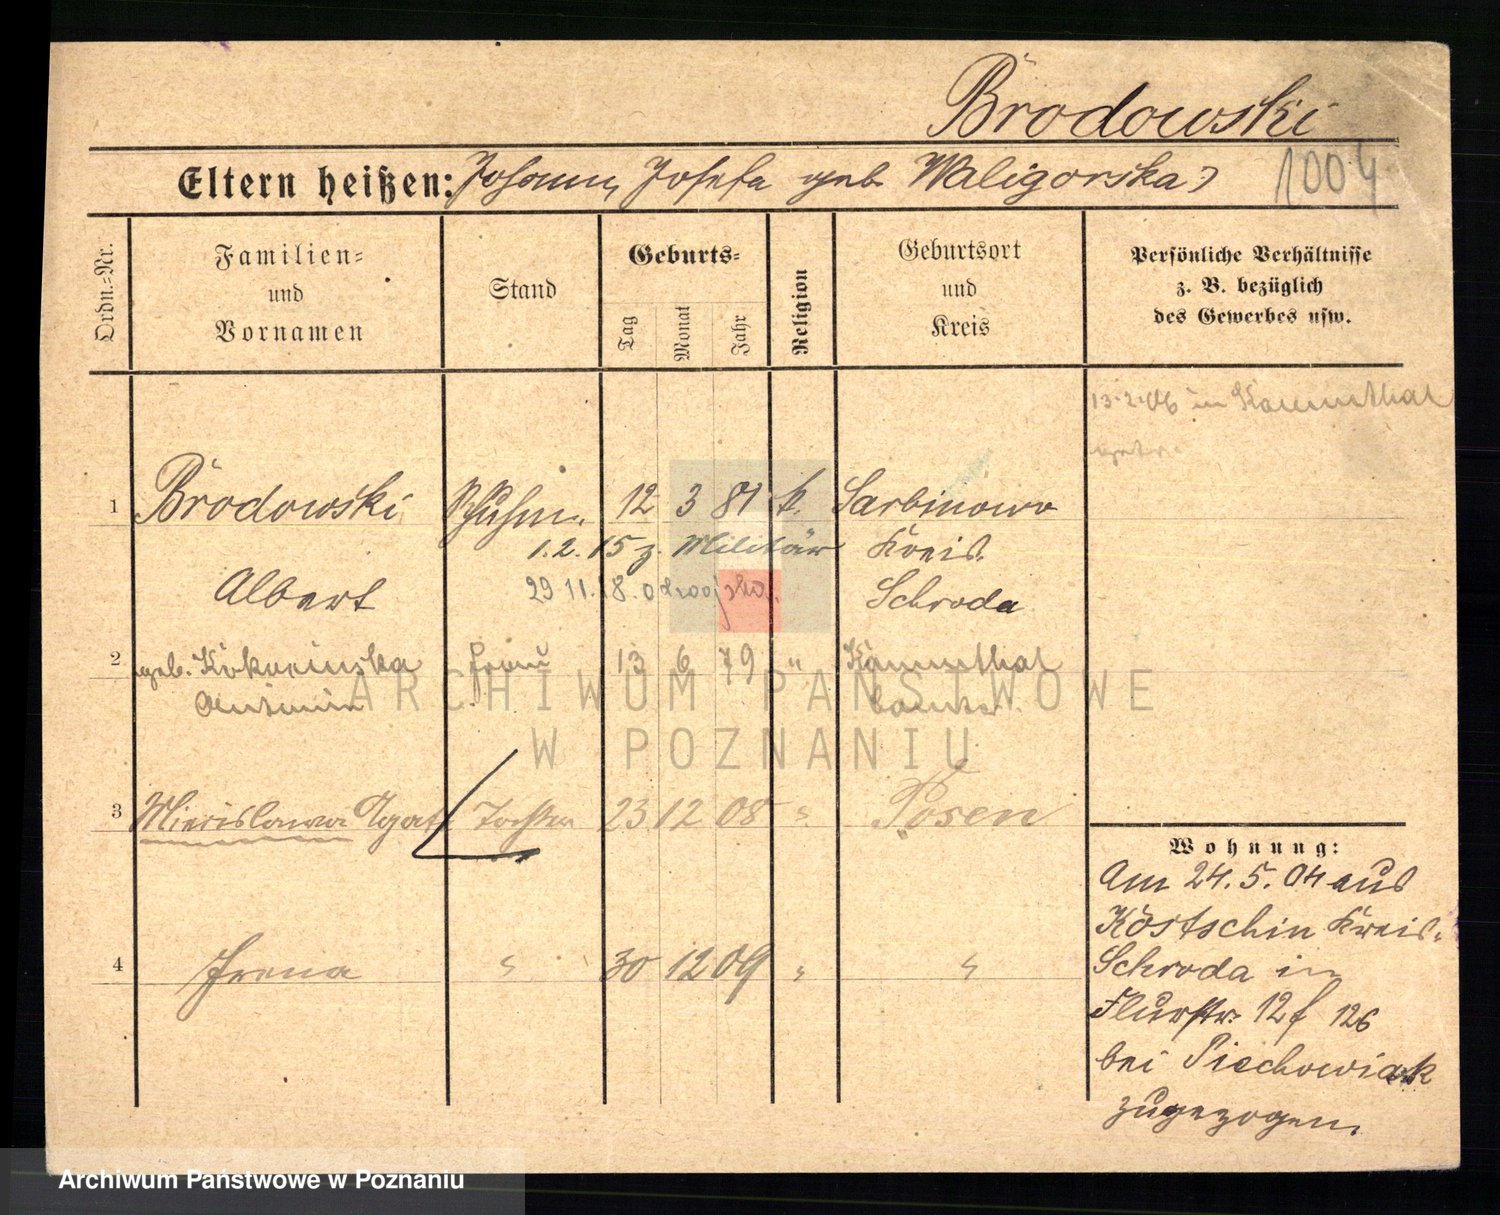 Brodowski
Eltern heißen: Johann, Josefa geb. Waligorska
1004
Ordn.=Nr.
Familien=
und
Vornamen
Stand
Geburts=
Tag
Monat
Jahr
Religion
Geburtsort
und
Kreis
Persönliche Verhältnisse
z. B. bezüglich
des Gewerbes usw.
13.2.06 in Kaminthal
getr.
1 Brodowski Schuhm. 12 3 81 k. Sarbinowo
1.2.15 z. Militär Kreis
Albert 29 11.18. Schroda
2 geb. Frau 13 6 79 " Kaminthal
3 Mierislawa Agat Tochter 23 12 08 " Posen
4 Irena " 30 12 09 " "
Wohnung:
Am 24.5.04 aus
Kostschin Kreis
Schroda in
Flurstr. 12f 126
bei Piechowiak
zugezogen.
ARCHIWUM PAŃSTWOWE
W POZNANIU
Archiwum Państwowe w Poznaniu